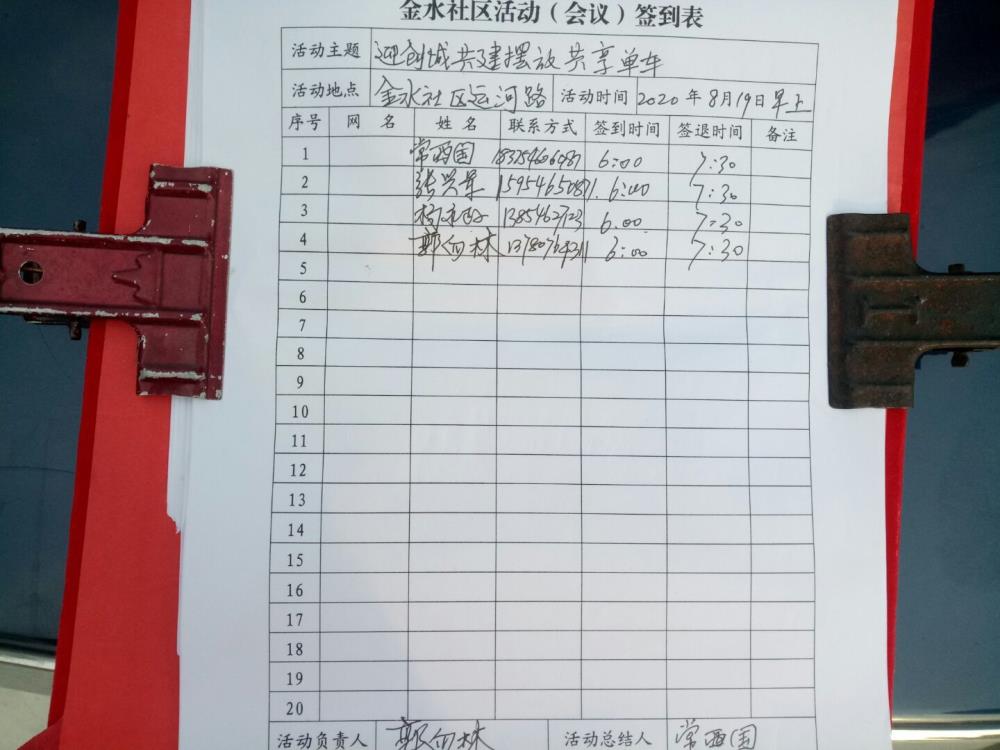 金水社区活动（会议）签到表
活动主题 迎创城共建摆放共享单车
活动地点 金水社区运河路 活动时间 2020年8月19日早上
序号 网 名 姓 名 联系方式 签到时间 签退时间 备注
1 常西国 6:00 7:30
2 张兴军 6:00 7:30
3 6:00 7:30
4 郭向林 6:00 7:30
5
6
7
8
9
10
11
12
13
14
15
16
17
18
19
20
活动负责人 郭向林 活动总结人 常西国